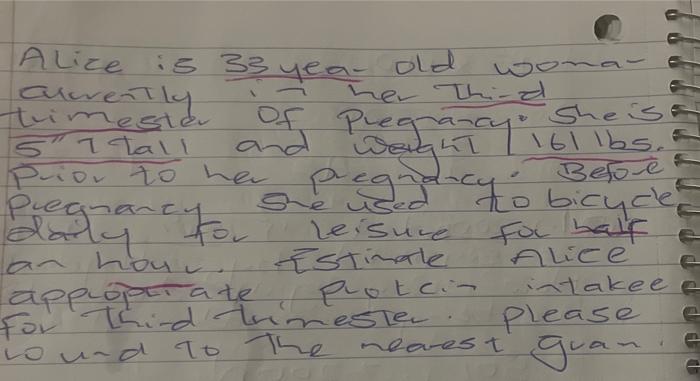 Alice is 33 year old woman
currently in her Third
trimester of pregnancy. She is
5"7 tall and weight 161 lbs.
Prior to her pregnancy. Before
pregnancy she used to bicycle
daily for leisure for half
an hour. Estimate Alice
appropriate protein intakee
for Third trimester. please
round to the nearest gram.